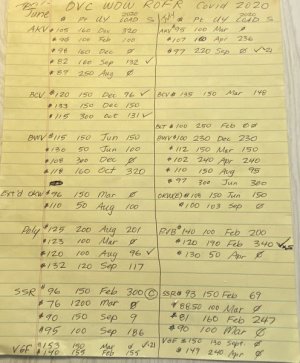 OVC WDW ROFR Covid 2020
June
$ Pt UY 2020 LOAD S
$ Pt UY 2020 LOAD S
AKV $105 160 Dec 320
AKV $95 100 Mar Ø
$96 100 Feb 100
$107 160 Apr 236
$98 160 Dec Ø
$97 220 Sep Ø ✓21
$82 160 Sep 132 ✓
$87 250 Aug Ø
BCV $120 150 Dec 96 ✓
BCV $135 150 Mar 148
$133 150 Dec 150
$115 300 Oct 131 ✓
BLT $100 250 Feb Ø
BWV $115 150 Jun 150
BWV $100 230 Dec 230
$130 50 Jun 100
$112 150 Mar 150
$108 300 Dec Ø
$102 240 Apr 240
$118 160 Oct 320
$110 150 Aug 95
$97 300 Jun 300
Ext'd OKW $96 150 Mar Ø
OKW(E) $108 150 Jun 150
$110 50 Aug 100
$100 103 Sep Ø
Poly $125 200 Aug 201
RVB $140 100 Feb 200
$123 100 Mar Ø
$120 190 Feb 340
$120 100 Aug 96 ✓
$130 50 Apr Ø
$132 120 Sep 117
SSR $96 150 Feb 300 ©
SSR $93 150 Feb 69
$76 1200 Mar Ø
$88.50 100 Mar Ø
$90 150 Sep 9
$81 160 Feb 247
$95 100 Sep 186
$90 100 Mar Ø
VGF $153 150 Mar Ø ✓21
VGF $150 130 Sept. Ø
$140 155 Feb 155
$149 240 Apr Ø